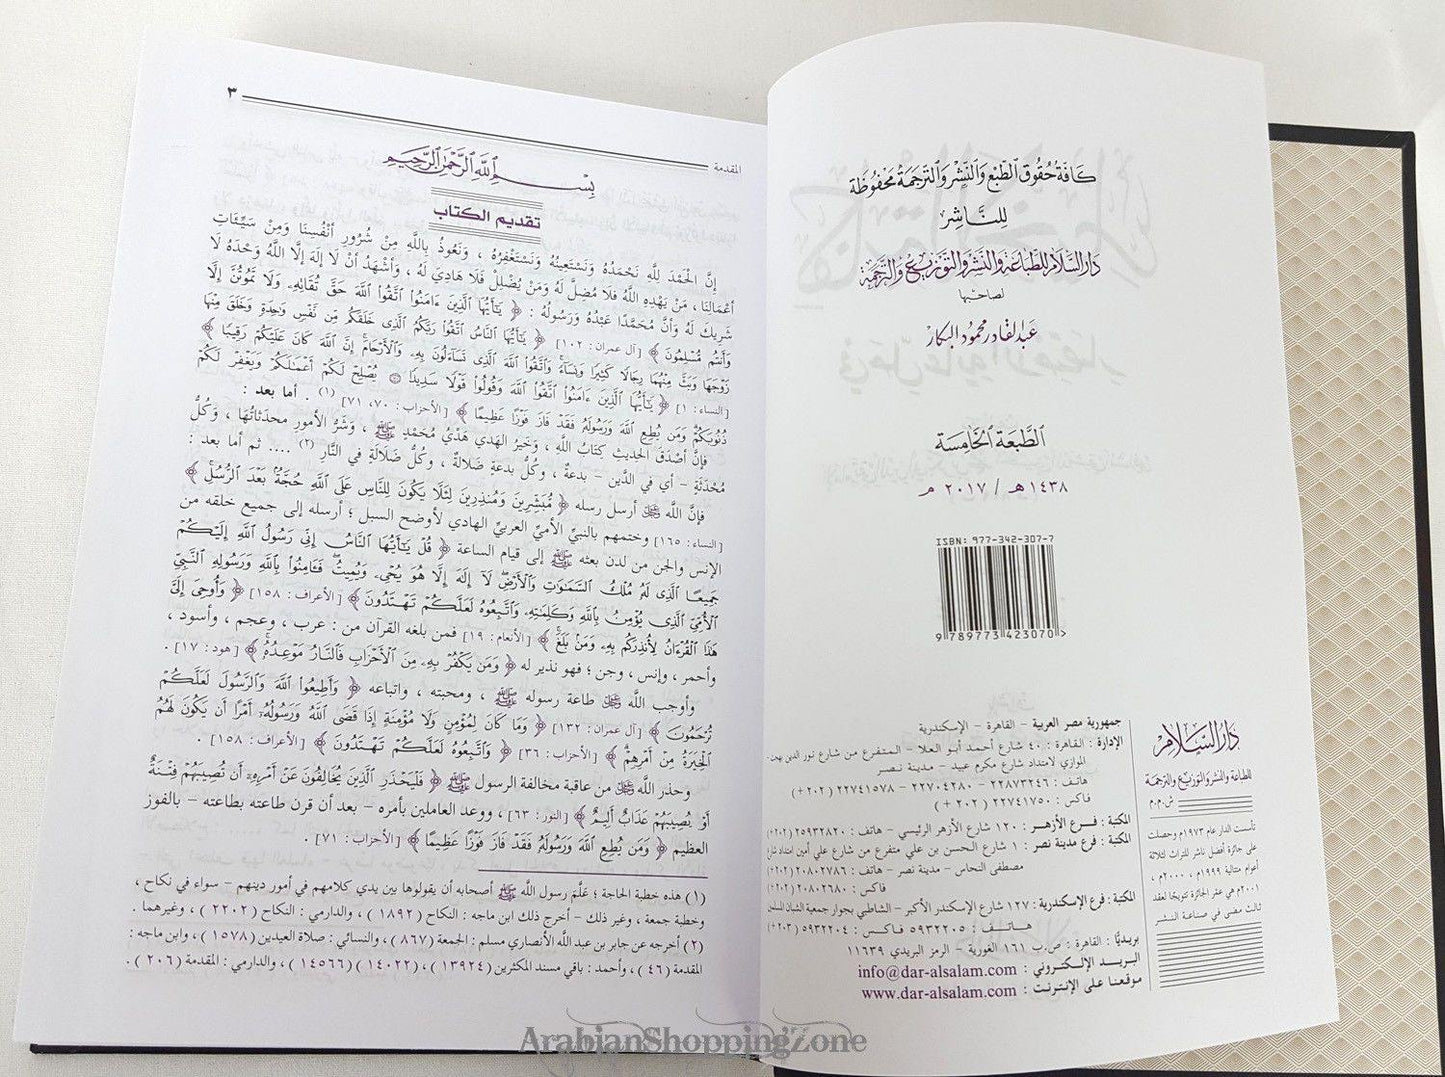 كافة حقوق الطبع والنشر والترجمة محفوظة
للناشر
دار السلام للطباعة والنشر والتوزيع والترجمة
لصاحبها
عبد القادر محمود البكار
الطبعة الخامسة
١٤٣٨ هـ / ٢٠١٧ م
ISBN: 977-342-307-7
9 789773 423070 >
جمهورية مصر العربية - القاهرة - الإسكندرية
الإدارة : القاهرة : ٤٠ شارع أحمد أبو العلا - المتفرع من شارع نور الدين بهجت -
الموازي لامتداد شارع مكرم عبيد - مدينة نصر
هاتف : ٢٢٨٧٣٢٤٦ - ٢٢٧٠٤٢٨٠ - ٢٢٧٤١٥٧٨ ( ٢٠٢ + )
فاكس : ٢٢٧٤١٧٥٠ ( ٢٠٢ + )
المكتبة : فرع الأزهر : ١٢٠ شارع الأزهر الرئيسي - هاتف : ٢٥٩٣٢٨٢٠ ( ٢٠٢ + )
المكتبة : فرع مدينة نصر : ١ شارع الحسن بن علي متفرع من شارع علي أمين امتداد شارع
مصطفى النحاس - مدينة نصر - هاتف : ٢٠٨٠٢٧٨٦ ( ٢٠٢ + )
فاكس : ٢٠٨٠٢٦٨٠ ( ٢٠٢ + )
المكتبة : فرع الإسكندرية : ١٢٧ شارع الإسكندر الأكبر - الشاطبي بجوار جمعية الشبان المسلمين
هاتف : ٥٩٣٢٢٠٥ فاكس : ٥٩٣٢٢٠٤ ( ٢٠٣ + )
بريديًّا : القاهرة : ص.ب ١٦١ الغورية - الرمز البريدي ١١٦٣٩
البريد الإلكتروني : info@dar-alsalam.com
موقعنا على الإنترنت : www.dar-alsalam.com
دار السلام
للطباعة والنشر والتوزيع والترجمة
ش.م.م
تأسست الدار عام ١٩٧٣م وحصلت
على جائزة أفضل ناشر للتراث لثلاثة
أعوام متتالية ١٩٩٩م ، ٢٠٠٠م ،
٢٠٠١م هي عقر الجائزة تتويجًا لعقد
ثالث مضى في صناعة النشر
المقدمة ٣
بسم الله الرحمن الرحيم
تقديم الكتاب
إنَّ الحَمْدَ للَّهِ نَحْمَدُهُ وَنَسْتَعِينُهُ وَنَسْتَغْفِرُهُ ، وَنَعُوذُ بِاللَّهِ مِنْ شُرُورِ أَنْفُسِنَا وَمِنْ سَيِّئَاتِ
أَعْمَالِنَا ، مَنْ يَهْدِهِ اللَّهُ فَلَا مُضِلَّ لَهُ وَمَنْ يُضْلِلْ فَلَا هَادِيَ لَهُ ، وَأَشْهَدُ أَنْ لَا إِلَهَ إِلَّا اللَّهُ وَحْدَهُ لَا
شَرِيكَ لَهُ وَأَنَّ مُحَمَّدًا عَبْدُهُ وَرَسُولُهُ : ﴿ يَٰٓأَيُّهَا ٱلَّذِينَ ءَامَنُوا۟ ٱتَّقُوا۟ ٱللَّهَ حَقَّ تُقَاتِهِۦ وَلَا تَمُوتُنَّ إِلَّا
وَأَنتُم مُّسْلِمُونَ ﴾ [ آل عمران : ١٠٢ ] ﴿ يَٰٓأَيُّهَا ٱلنَّاسُ ٱتَّقُوا۟ رَبَّكُمُ ٱلَّذِى خَلَقَكُم مِّن نَّفْسٍ وَٰحِدَةٍ وَخَلَقَ مِنْهَا
زَوْجَهَا وَبَثَّ مِنْهُمَا رِجَالًا كَثِيرًا وَنِسَآءً ۚ وَٱتَّقُوا۟ ٱللَّهَ ٱلَّذِى تَسَآءَلُونَ بِهِۦ وَٱلْأَرْحَامَ ۚ إِنَّ ٱللَّهَ كَانَ عَلَيْكُمْ رَقِيبًا ﴾
[ النساء : ١ ] ﴿ يَٰٓأَيُّهَا ٱلَّذِينَ ءَامَنُوا۟ ٱتَّقُوا۟ ٱللَّهَ وَقُولُوا۟ قَوْلًا سَدِيدًا ۝ يُصْلِحْ لَكُمْ أَعْمَٰلَكُمْ وَيَغْفِرْ لَكُمْ
ذُنُوبَكُمْ ۗ وَمَن يُطِعِ ٱللَّهَ وَرَسُولَهُۥ فَقَدْ فَازَ فَوْزًا عَظِيمًا ﴾ [ الأحزاب : ٧٠، ٧١ ] (١) . أما بعد :
فإنَّ أصْدَقَ الحديثِ كتابُ اللَّهِ ، وَخَيرُ الهدي هَدْيُ مُحَمَّدٍ ﷺ ، وَشَرُّ الأمورِ محدثاتُهَا ، وَكُلُّ
مُحْدَثَةٍ - أي في الدَّين - بدعةٌ ، وكُلُّ بدعةٍ ضلالةٌ ، وكُلُّ ضلالةٍ في النَّارِ (٢) .... ثم أما بعد :
فإنَّ اللَّه ﷻ أرسل رسله ﴿ مُّبَشِّرِينَ وَمُنذِرِينَ لِئَلَّا يَكُونَ لِلنَّاسِ عَلَى ٱللَّهِ حُجَّةٌۢ بَعْدَ ٱلرُّسُلِ ﴾
[ النساء : ١٦٥ ] وختمهم بالنبيِّ الأميِّ العربيِّ الهادي لأوضح السبل ؛ أرسله إلى جميع خلقه من
الإنس والجن من لدن بعثه ﷺ إلى قيام الساعة ﴿ قُلْ يَٰٓأَيُّهَا ٱلنَّاسُ إِنِّى رَسُولُ ٱللَّهِ إِلَيْكُمْ
جَمِيعًا ٱلَّذِى لَهُۥ مُلْكُ ٱلسَّمَٰوَٰتِ وَٱلْأَرْضِ ۖ لَآ إِلَٰهَ إِلَّا هُوَ يُحْىِۦ وَيُمِيتُ ۖ فَـَٔامِنُوا۟ بِٱللَّهِ وَرَسُولِهِ ٱلنَّبِىِّ
ٱلْأُمِّىِّ ٱلَّذِى يُؤْمِنُ بِٱللَّهِ وَكَلِمَٰتِهِۦ وَٱتَّبِعُوهُ لَعَلَّكُمْ تَهْتَدُونَ ﴾ [ الأعراف : ١٥٨ ] ﴿ وَأُوحِىَ إِلَىَّ
هَٰذَا ٱلْقُرْءَانُ لِأُنذِرَكُم بِهِۦ وَمَنۢ بَلَغَ ﴾ [ الأنعام : ١٩ ] فمن بلغه القرآن من : عرب ، وعجم ، وأسود ،
وأحمر ، وإنس ، وجن ؛ فهو نذير له ﴿ وَمَن يَكْفُرْ بِهِۦ مِنَ ٱلْأَحْزَابِ فَٱلنَّارُ مَوْعِدُهُۥ ﴾ [ هود : ١٧ ] .
وأوجب اللَّه ﷻ طاعة رسوله ﷺ ، ومحبته ، واتباعه ﴿ وَأَطِيعُوا۟ ٱللَّهَ وَٱلرَّسُولَ لَعَلَّكُمْ
تُرْحَمُونَ ﴾ [ آل عمران : ١٣٢ ] ﴿ وَمَا كَانَ لِمُؤْمِنٍ وَلَا مُؤْمِنَةٍ إِذَا قَضَى ٱللَّهُ وَرَسُولُهُۥٓ أَمْرًا أَن يَكُونَ لَهُمُ
ٱلْخِيَرَةُ مِنْ أَمْرِهِمْ ﴾ [ الأحزاب : ٣٦ ] ﴿ وَٱتَّبِعُوهُ لَعَلَّكُمْ تَهْتَدُونَ ﴾ [ الأعراف : ١٥٨ ] .
وحذر اللَّه ﷻ من عاقبة مخالفة الرسول ﷺ ﴿ فَلْيَحْذَرِ ٱلَّذِينَ يُخَالِفُونَ عَنْ أَمْرِهِۦٓ أَن تُصِيبَهُمْ فِتْنَةٌ
أَوْ يُصِيبَهُمْ عَذَابٌ أَلِيمٌ ﴾ [ النور : ٦٣ ] ، ووعد العاملين بأمره - بعد أن قرن طاعته بطاعته - بالفوز
العظيم ﴿ وَمَن يُطِعِ ٱللَّهَ وَرَسُولَهُۥ فَقَدْ فَازَ فَوْزًا عَظِيمًا ﴾ [ الأحزاب : ٧١ ] .
(١) هذه خطبة الحاجة ؛ عَلَّمَ رسول اللَّه ﷺ أصحابه أن يقولوها بين يدي كلامهم في أمور دينهم - سواء في نكاح ،
وخطبة جمعة ، وغير ذلك - أخرج ذلك ابن ماجه : النكاح ( ١٨٩٢ ) ، والدارمي : النكاح ( ٢٢٠٢ ) ، وغيرهما .
(٢) أخرجه عن جابر بن عبد اللَّه الأنصاري مسلم : الجمعة ( ٨٦٧ ) ، والنسائي : صلاة العيدين ( ١٥٧٨ ) ، وابن ماجه :
المقدمة ( ٤٦ ) ، وأحمد : باقي مسند المكثرين ( ١٣٩٢٤ ) ، ( ١٤٠٢٢ ) ( ١٤٥٦٦ ) ، والدارمي : المقدمة ( ٢٠٦ ) .
ArabianShoppingZone